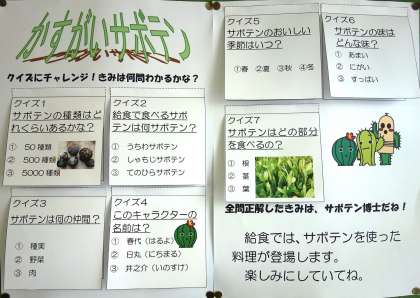 かすがいサボテン
クイズにチャレンジ！きみは何問わかるかな？
クイズ1
サボテンの種類はど
れくらいあるかな？
① 50種類
② 500種類
③ 5000種類
クイズ2
給食で食べるサボ
テンは何サボテン？
① うちわサボテン
② しゃちじサボテン
③ てのひらサボテン
クイズ3
サボテンは何の仲間？
① 種実
② 野菜
③ 肉
クイズ4
このキャラクターの
名前は？
① 春代（はるよ）
② 日丸（にちまる）
③ 井之介（いのすけ）
クイズ5
サボテンのおいしい
季節はいつ？
①春 ②夏 ③秋 ④冬
クイズ6
サボテンの味は
どんな味？
① あまい
② にがい
③ すっぱい
クイズ7
サボテンはどの部分
を食べるの？
① 根
② 茎
③ 葉
全問正解したきみは、サボテン博士だね！
給食では、サボテンを使った
料理が登場します。
楽しみにしていてね。